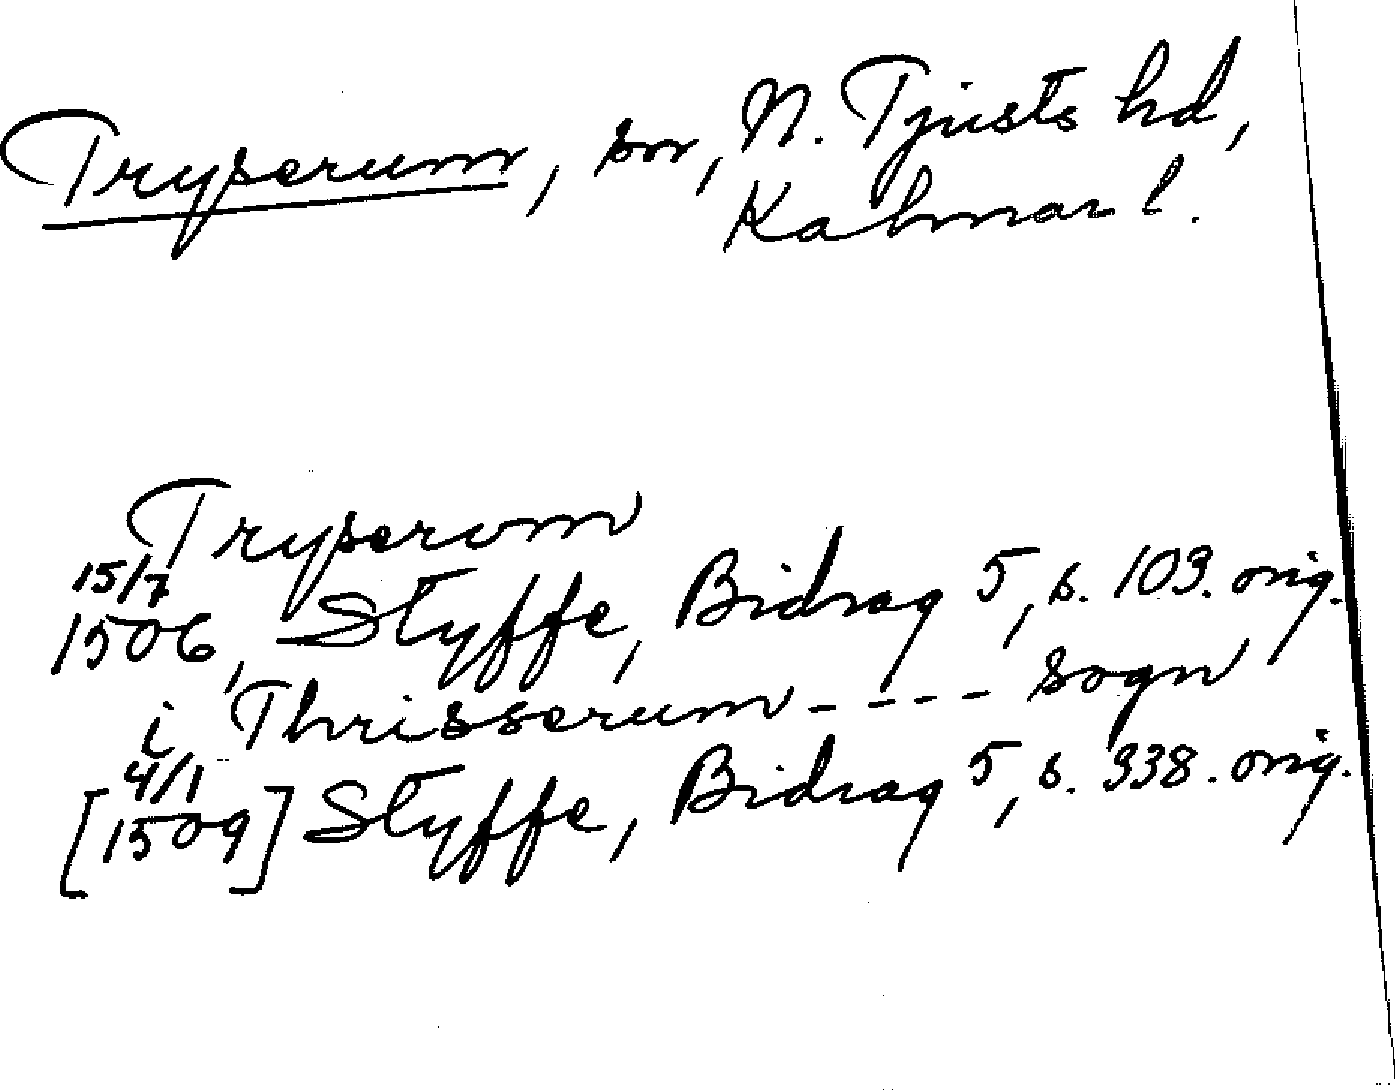 Tryserum, sn, N. Tjusts hd,
Kalmar l.
Tryserom
15/7
1506, Styffe, Bidrag 5, s. 103. orig.
i Thrisserum - - - - sogn
4/1
[1509] Styffe, Bidrag 5, s. 338. orig.